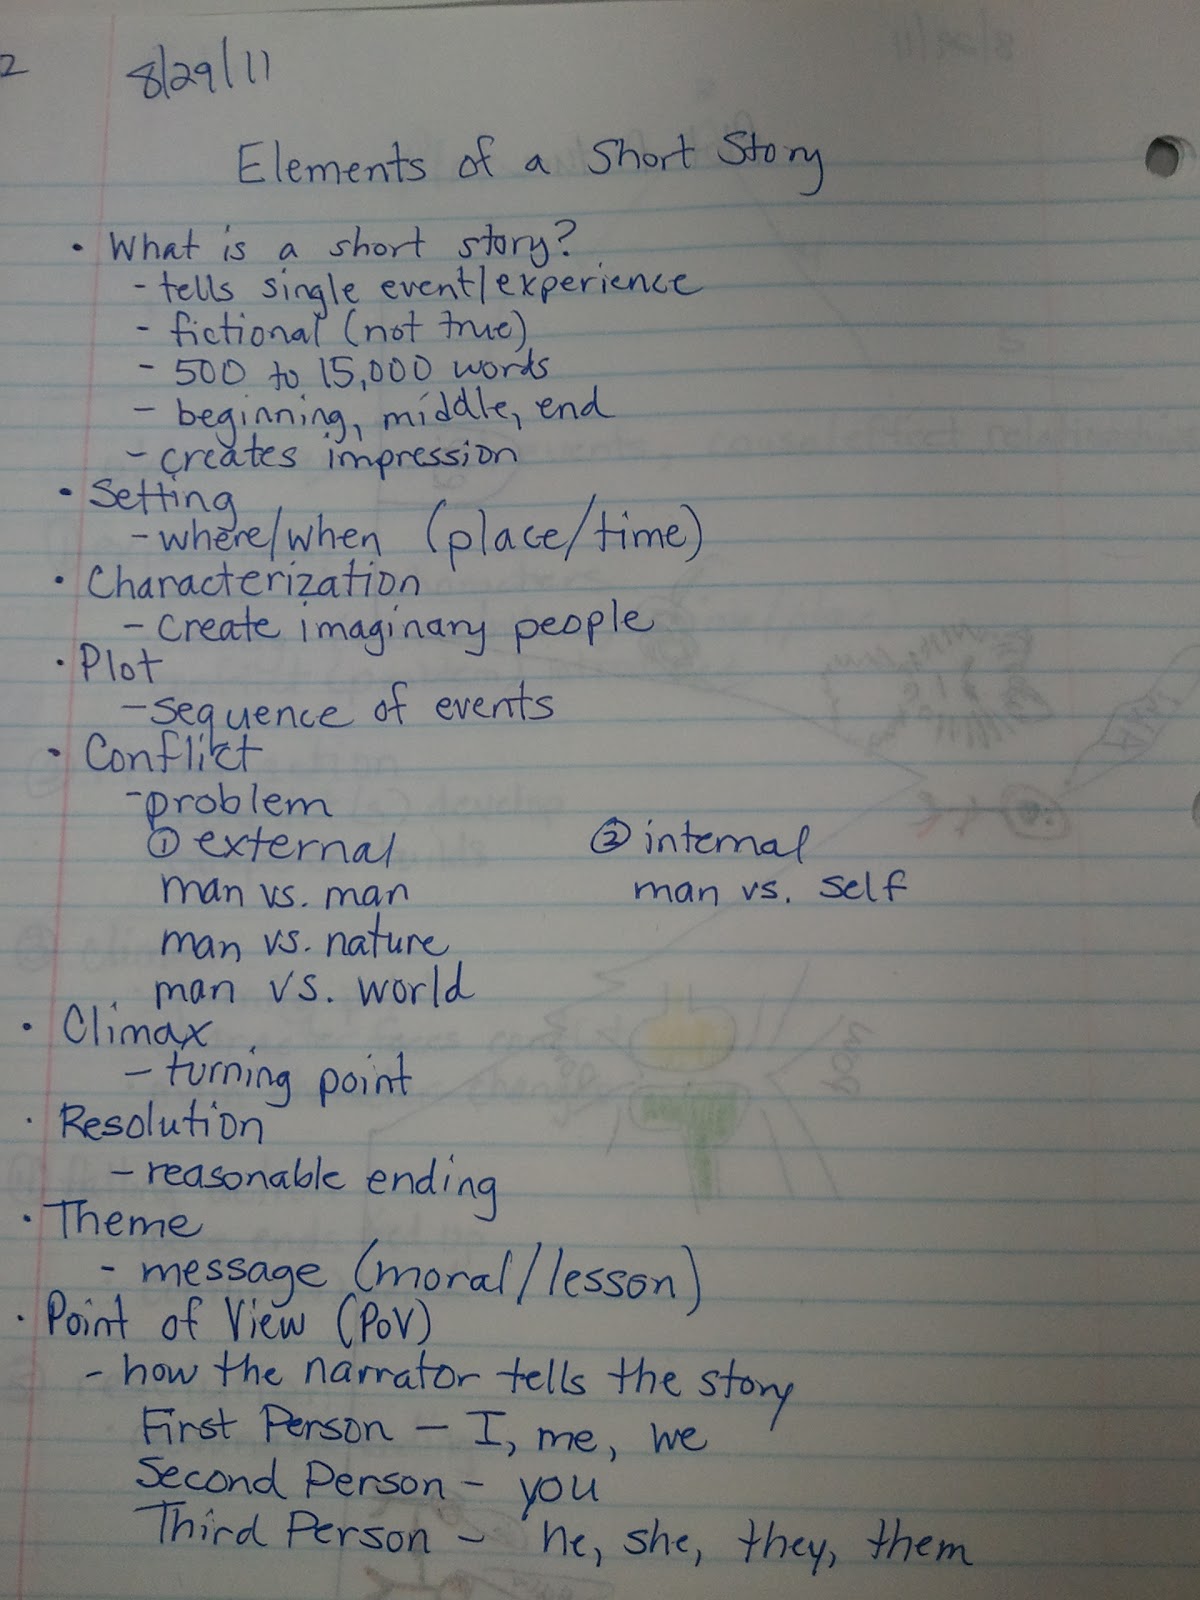 2
8/29/11
Elements of a Short Story
• What is a short story?
- tells single event/experience
- fictional (not true)
- 500 to 15,000 words
- beginning, middle, end
- creates impression
• Setting
- where/when (place/time)
• Characterization
- create imaginary people
• Plot
- sequence of events
• Conflict
- problem
① external ② internal
man vs. man man vs. self
man vs. nature
man vs. world
• Climax
- turning point
• Resolution
- reasonable ending
• Theme
- message (moral/lesson)
• Point of View (POV)
- how the narrator tells the story
First Person - I, me, we
Second Person - you
Third Person - he, she, they, them